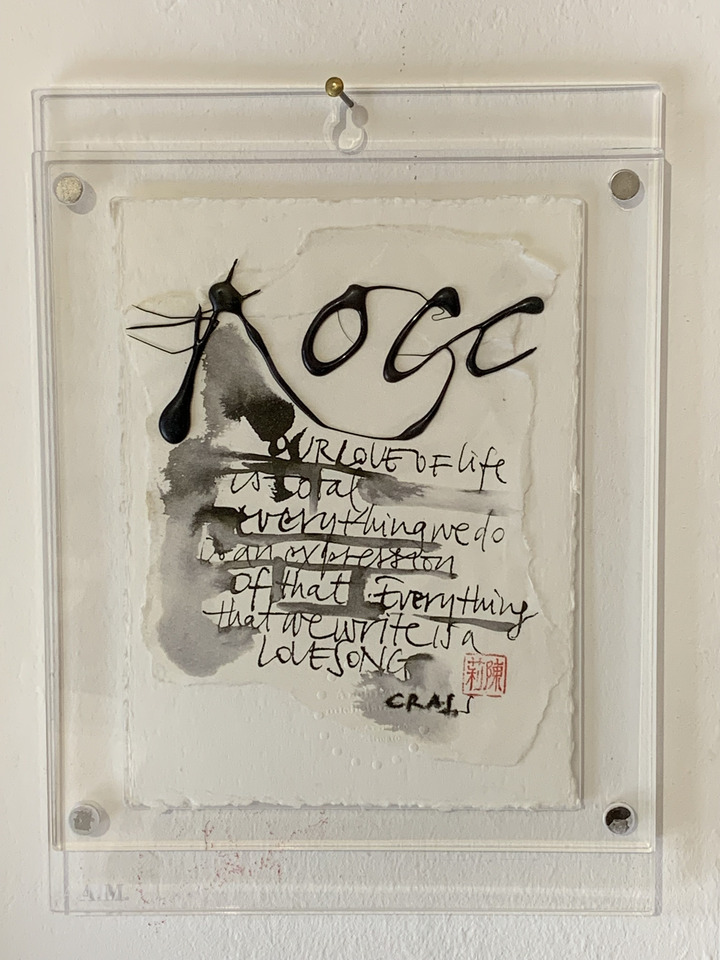 OUR LOVE OF life
is total
everything we do
is an expression
of that. Everything
that we write is a
LOVESONG
陳莉
CRASS
A.M.